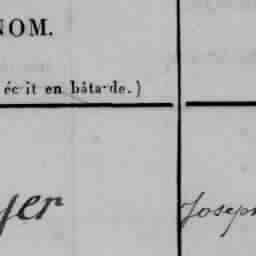 NOM.
écrit en bâtarde.)
yer Joseph